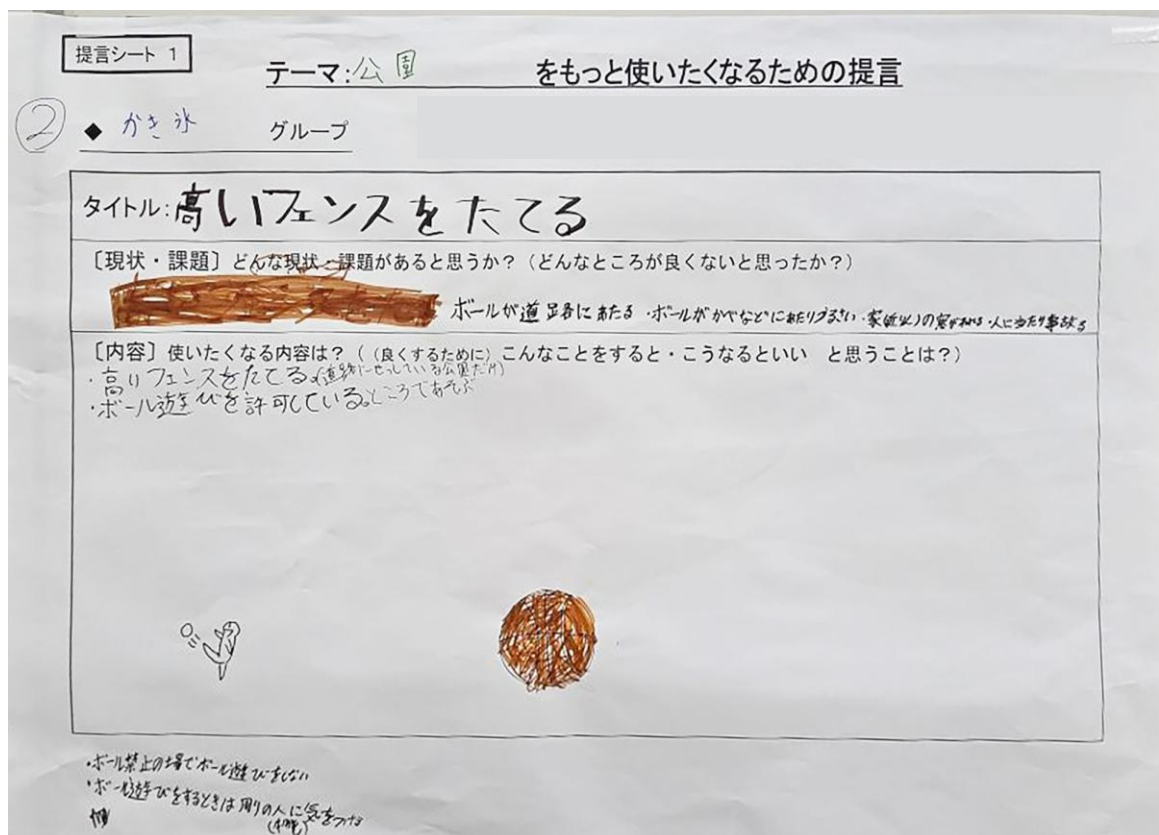 提言シート 1
テーマ:公園 をもっと使いたくなるための提言
② ◆ かき氷 グループ
タイトル:高いフェンスをたてる
〔現状・課題〕どんな現状・課題があると思うか?(どんなところが良くないと思ったか?)
ボールが道路にあたる ・ボールがかべなどにあたりうるさい ・家 の窓がわれる ・人に当たり事故る
〔内容〕使いたくなる内容は?((良くするために)こんなことをすると・こうなるといい と思うことは?)
・高いフェンスをたてる。(道路にせっしている公園だけ)
・ボール遊びを許可しているところであそぶ
・ボール禁止の場でボール遊びをしない
・ボール遊びをするときは周りの人に気をつける